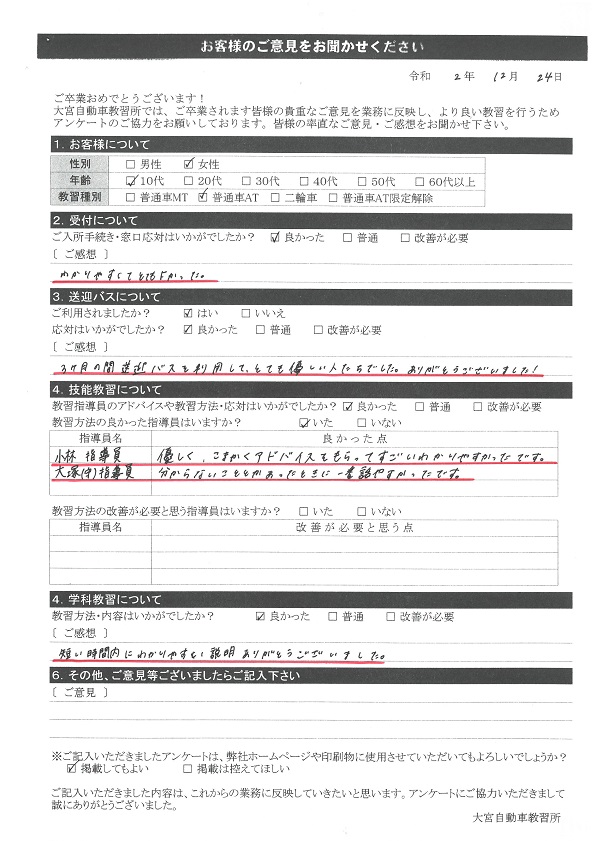 お客様のご意見をお聞かせください
令和 2年 12月 24日
ご卒業おめでとうございます！
大宮自動車教習所では、ご卒業されます皆様の貴重なご意見を業務に反映し、より良い教習を行うため
アンケートのご協力をお願いしております。皆様の率直なご意見・ご感想をお聞かせ下さい。
1. お客様について
性別 □ 男性 ☑ 女性
年齢 ☑ 10代 □ 20代 □ 30代 □ 40代 □ 50代 □ 60代以上
教習種別 □ 普通車MT ☑ 普通車AT □ 二輪車 □ 普通車AT限定解除
2. 受付について
ご入所手続き・窓口応対はいかがでしたか？ ☑ 良かった □ 普通 □ 改善が必要
〔 ご感想 〕
わかりやすくてとてもよかった。
3. 送迎バスについて
ご利用されましたか？ ☑ はい □ いいえ
応対はいかがでしたか？ ☑ 良かった □ 普通 □ 改善が必要
〔 ご感想 〕
3ヶ月の間送迎バスを利用して、とても優しい人たちでした。ありがとうございました！
4. 技能教習について
教習指導員のアドバイスや教習方法・応対はいかがでしたか？ ☑ 良かった □ 普通 □ 改善が必要
教習方法の良かった指導員はいますか？ ☑ いた □ いない
指導員名 良かった点
小林 指導員 優しく、こまかくアドバイスをもらってすごいわかりやすかったです。
大塚(守)指導員 分からないこととかあったときに一番話やすかったです。
教習方法の改善が必要と思う指導員はいますか？ □ いた □ いない
指導員名 改善が必要と思う点
4. 学科教習について
教習方法・内容はいかがでしたか？ ☑ 良かった □ 普通 □ 改善が必要
〔 ご感想 〕
短い時間内にわかりやすい説明ありがとうございました。
6. その他、ご意見等ございましたらご記入下さい
〔 ご意見 〕
※ご記入いただきましたアンケートは、弊社ホームページや印刷物に使用させていただいてもよろしいでしょうか？
☑ 掲載してもよい □ 掲載は控えてほしい
ご記入いただきました内容は、これからの業務に反映していきたいと思います。アンケートにご協力いただきまして
誠にありがとうございました。
大宮自動車教習所